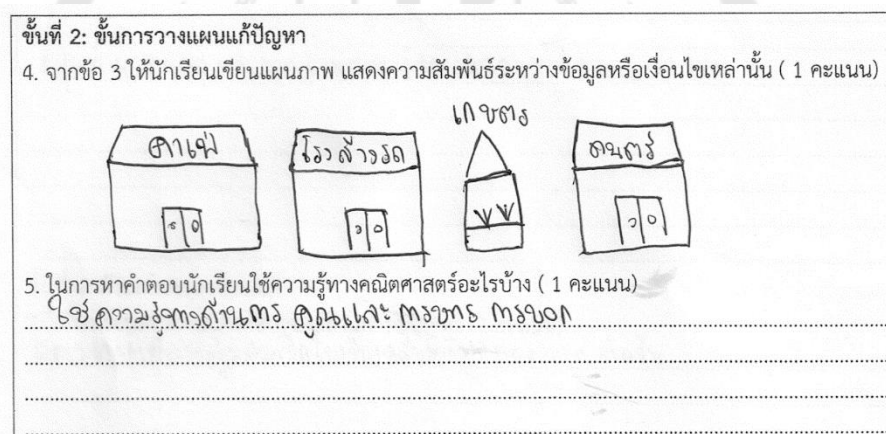 ขั้นที่ 2: ขั้นการวางแผนแก้ปัญหา
4. จากข้อ 3 ให้นักเรียนเขียนแผนภาพ แสดงความสัมพันธ์ระหว่างข้อมูลหรือเงื่อนไขเหล่านั้น ( 1 คะแนน)
คาเฟ่ โรงล้างรถ เกษตร ดนตรี
5. ในการหาคำตอบนักเรียนใช้ความรู้ทางคณิตศาสตร์อะไรบ้าง ( 1 คะแนน)
ใช้ความรู้ทางด้านการ คูณและ การหาร การบอก